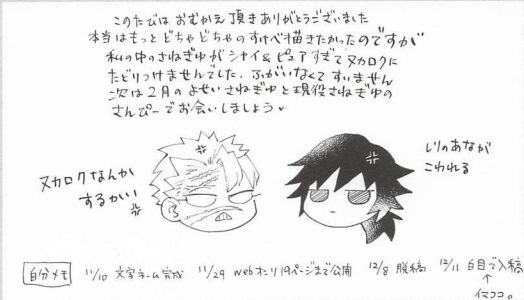 このたびは おむかえ 頂き ありがとうございました
本当はもっと どちゃどちゃの すけべ 描きたかったのですが
私の中のさねぎゆが シャイ&ピュアすぎて ヌカロクに
たどりつけませんでした、ふがいなくて すいません
次は2月の よせい さねぎゆと 現役さねぎゆの
さんぴーで お会いしましょう
ヌカロクなんか
するかい
しりのあなが
こわれる
自分メモ 11/10 文字ネーム完成 11/29 webオンリ 19ページまで公開 12/8 脱稿 12/11 白目で入稿
↑
イマココ。